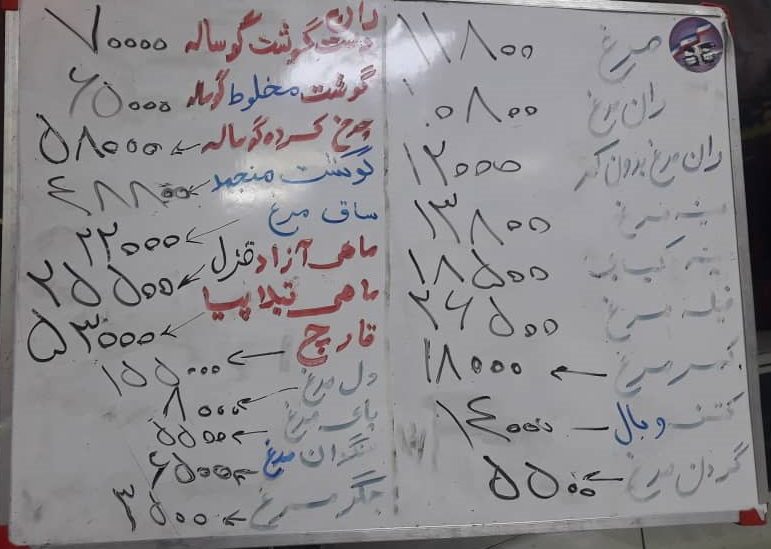 مرغ ۱۱۸۰۰
ران مرغ ۱۰۸۰۰
ران مرغ بدون کمر ۱۲۰۰۰
سینه مرغ ۱۳۸۰۰
سینه کبابی ۱۸۵۰۰
فیله مرغ ۲۶۵۰۰
کمر مرغ ← ۱۸۰۰۰
کتف و بال — ۱۴۰۰۰
گردن مرغ ← ۵۵۰۰
ران
دست گوشت گوساله ۷۰۰۰۰
گوشت مخلوط گوساله ۶۵۰۰۰
چرخ کرده گوساله ← ۵۸۰۰۰
گوشت منجمد ← ۴۸۸۰۰
ساق مرغ ← ۲۲۰۰۰
ماهی آزاد قزل ← ۲۵۵۰۰
ماهی تیلاپیا ← ۵۳۰۰۰
قارچ ← ۱۵۵۰۰۰
دل مرغ ← ۸۰۰۰
پای مرغ ← ۵۵۰۰
سنگدان مرغ ← ۶۵۰۰
جگر مرغ ← ۳۵۰۰